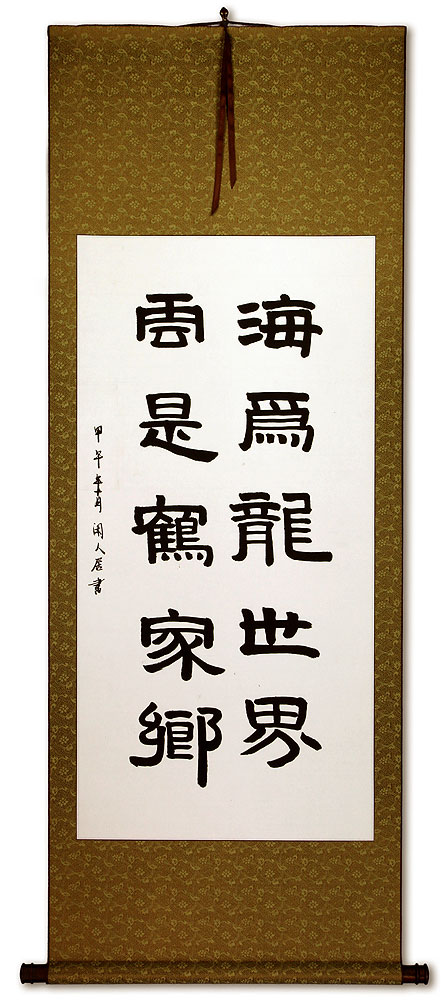 海爲龍世界
雲是鶴家鄉
甲午年月閑人居書